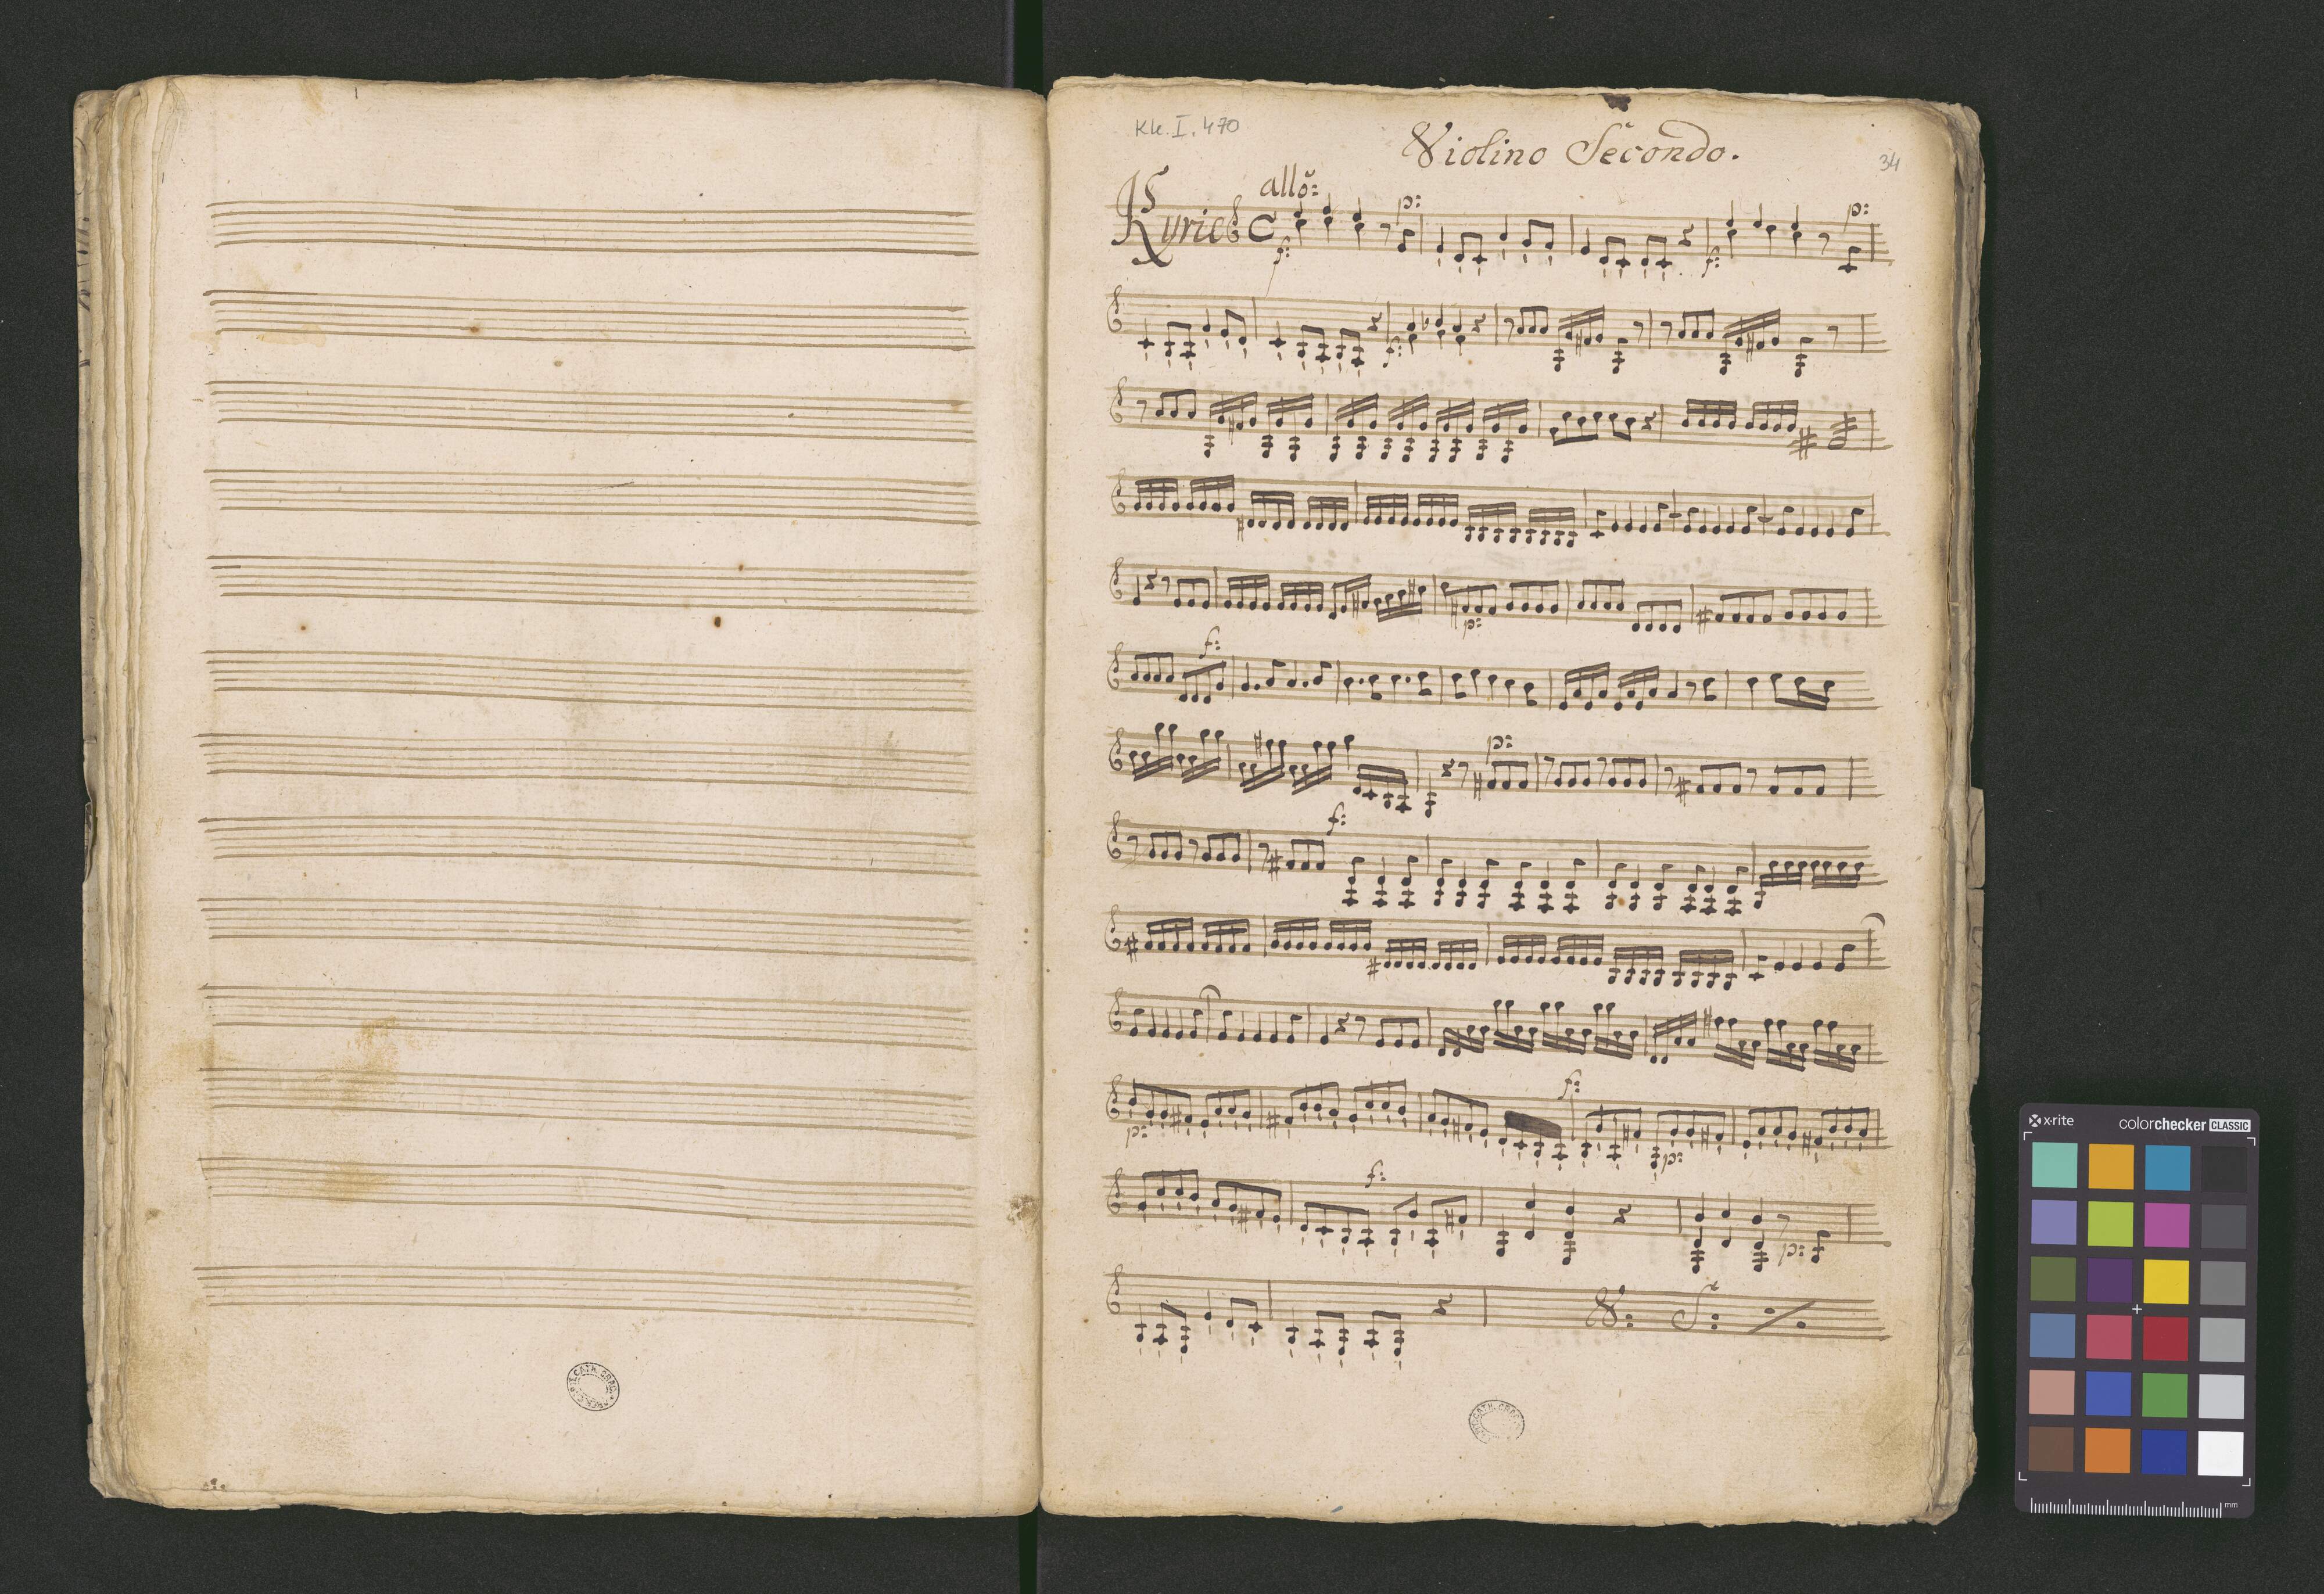 Kk. I. 470
Violino Secondo.
34
allo:
Kyrie
p:
p:
f:
f:
f:
p:
f:
p:
f:
f:
p:
p:
f:
p:
V: S:
x-rite
colorchecker CLASSIC
mm